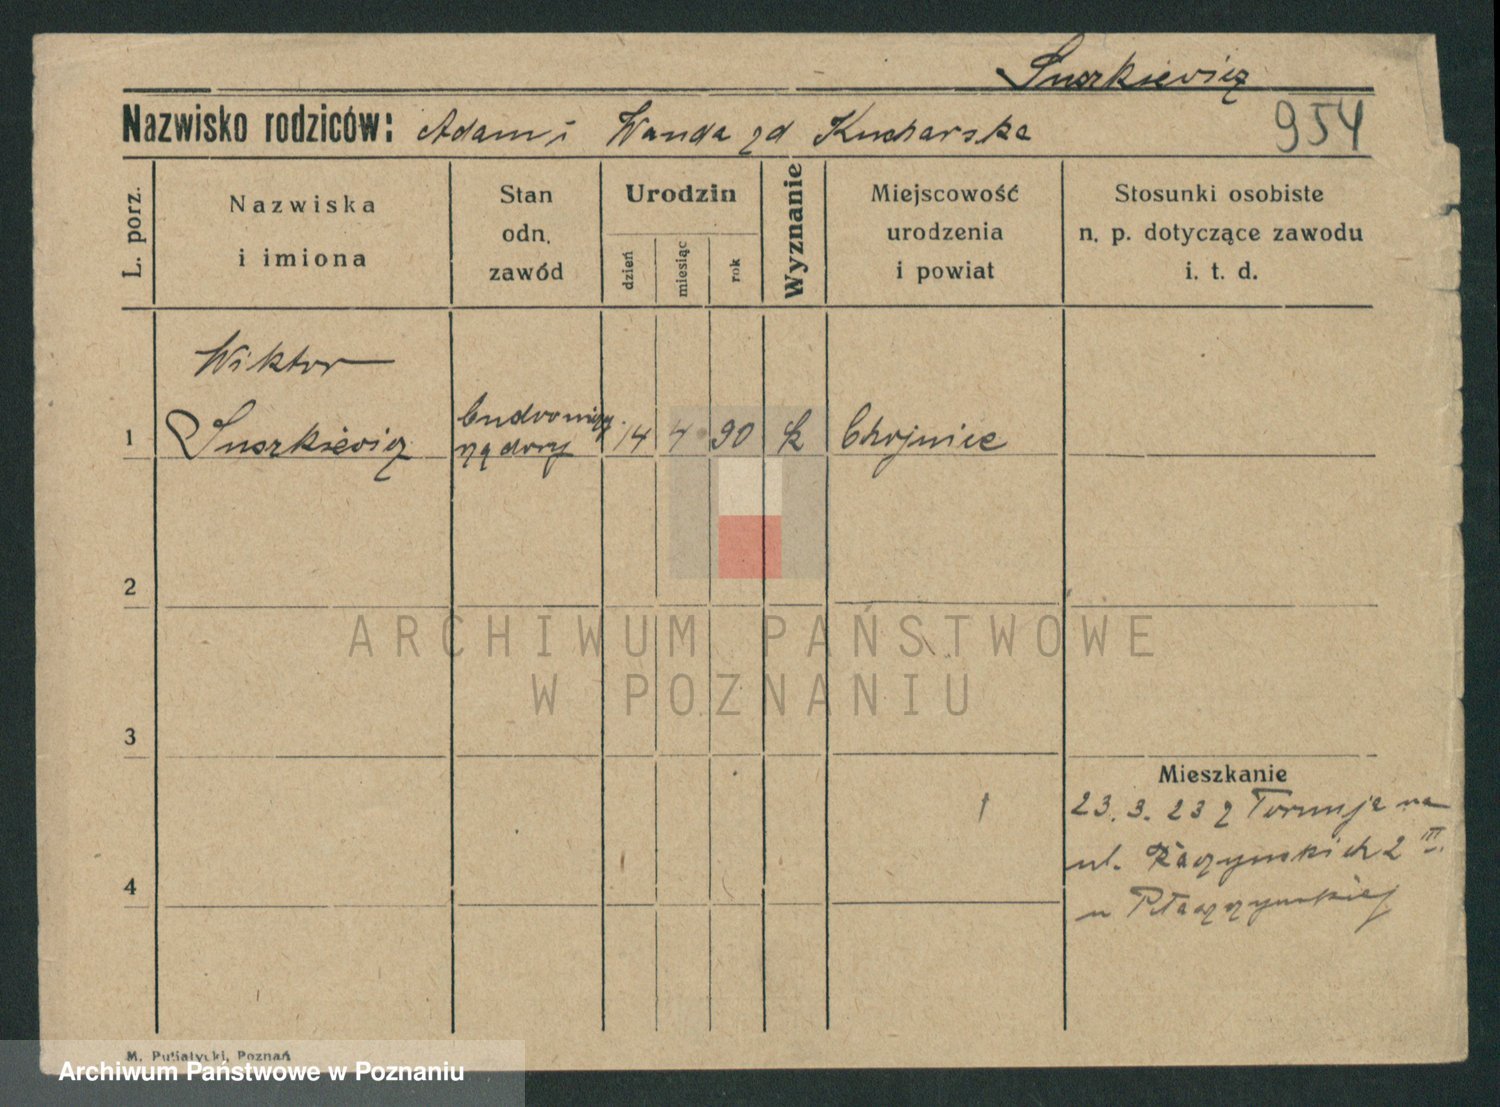 Suszkiewicz
Nazwisko rodziców: Adam i Wanda zd Kucharska
954
L. porz.
Nazwiska
i imiona
Stan
odn.
zawód
Urodzin
dzień
miesiąc
rok
Wyznanie
Miejscowość
urodzenia
i powiat
Stosunki osobiste
n. p. dotyczące zawodu
i. t. d.
Wiktor
1 Suszkiewicz
14 4 90 k Chojnice
2
3
4
Mieszkanie
23. 3. 23 z Torunia na
ul. Raczyńskich 2 III.
u Płaczyńskiej
ARCHIWUM PAŃSTWOWE
W POZNANIU
M. Putiatycki, Poznań
Archiwum Państwowe w Poznaniu